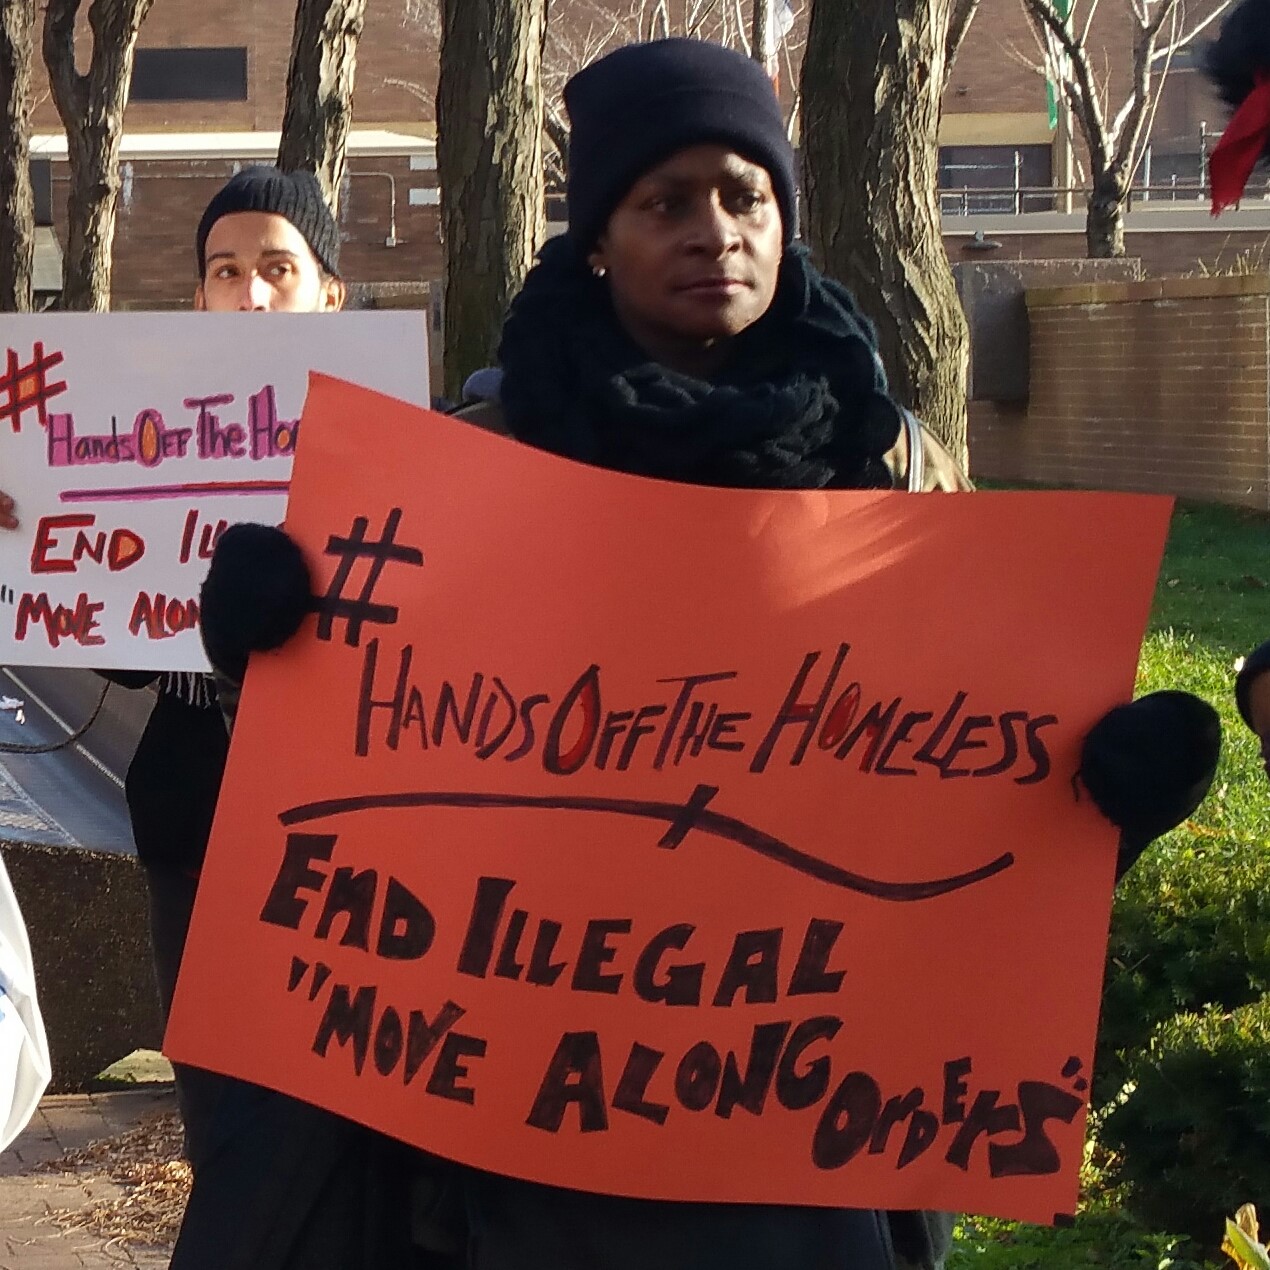 #
HandsOffTheHo
END Ill
"MOVE ALON
#
HANDSOFFTHEHOMELESS
END ILLEGAL
"MOVE ALONG OrdErs"